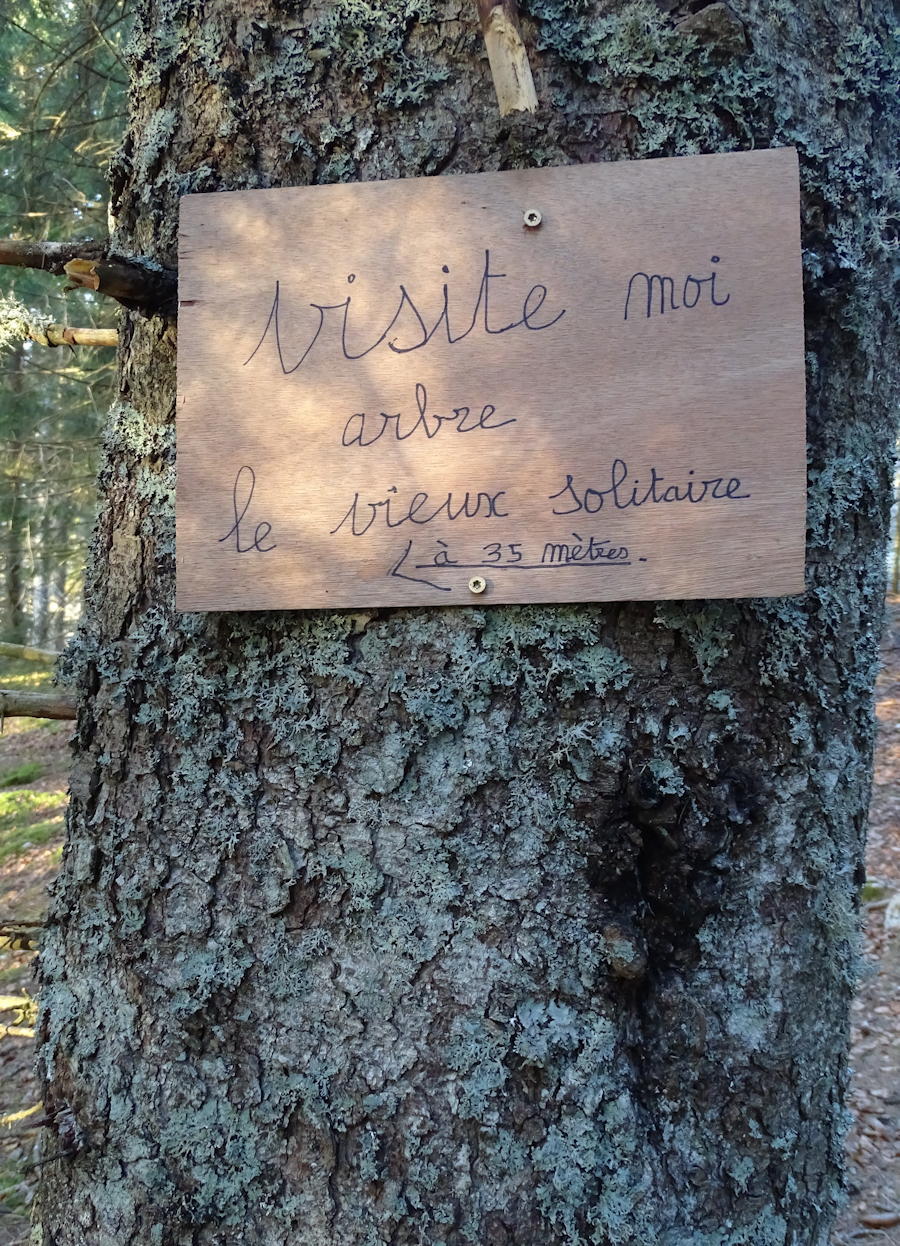 visite moi
arbre
le vieux solitaire
à 35 mètres.